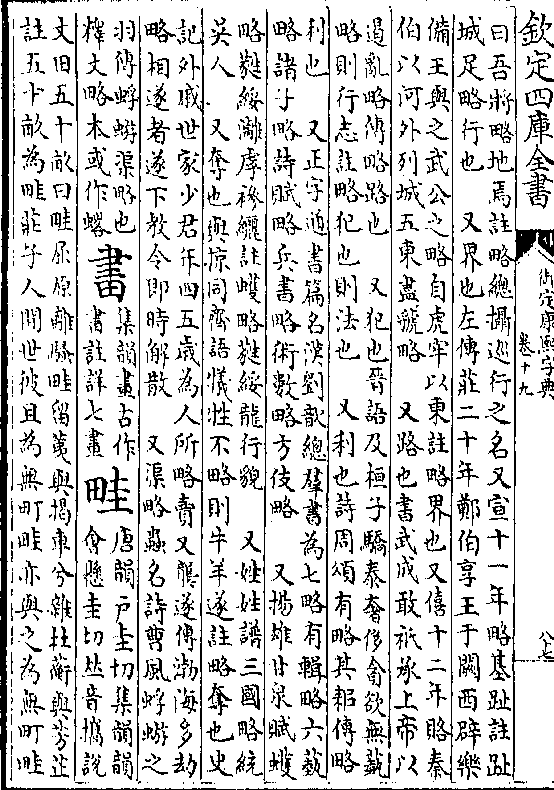 欽定四庫全書
御定康熙字典
卷十九
八七
曰吾將略地焉註略總攝巡行之名又宣十一年略基趾註趾
城足略行也　又界也左傳莊二十年鄭伯享王于闕西辟樂
備王與之武公之略自虎牢以東註略界也又僖十二年賂秦
伯以河外列城五東盡虢略　又路也書武成敢祇承上帝以
遏亂略傳略路也　又犯也晉語及桓子驕泰奢侈貪欲無藝
略則行志註略犯也則法也　又利也詩周頌有略其耜傳略
利也　又正字通書篇名漢劉歆總羣書為七略有輯略六藝
略諸子略詩賦略兵書略術數略方伎略　又揚雄甘泉賦蠖
略蕤綏灕虖襂纚註蠖略蕤綏龍行貌　又姓姓譜三國略統
吳人　又奪也與掠同齊語犧牲不略則牛羊遂註略奪也史
記外戚世家少君年四五歲為人所略賣又龔遂傳渤海多劫
略相遂者遂下教令即時解散　又渠略蟲名詩曹風蜉蝣之
羽傳蜉蝣渠略也
釋文略本或作蟘
畵
集韻畫古作
書註詳七畫
畦
唐韻戸圭切集韻韻
會懸圭切𠀤音攜說
文田五十畝曰畦屈原離騷畦留荑與揭車兮雜杜蘅與芳芷
註五十畝為畦莊子人閒世彼且為無町畦亦與之為無町畦